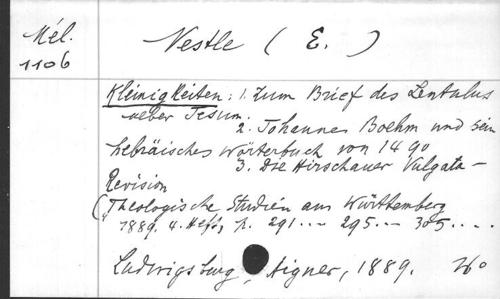 Mél.
1106
Nestle (E.)
Kleinigkeiten: 1. Zum Brief des Lentulus
ueber Jesum.
2. Johannes Boehm und sein
hebräisches Wörterbuch von 1490
3. Die Hirschauer Vulgata-
Revision
(Theologische Studien aus Württemberg
1889. 4. Heft, p. 291... 295... 305....
Ludwigsburg, Aigner, 1889.